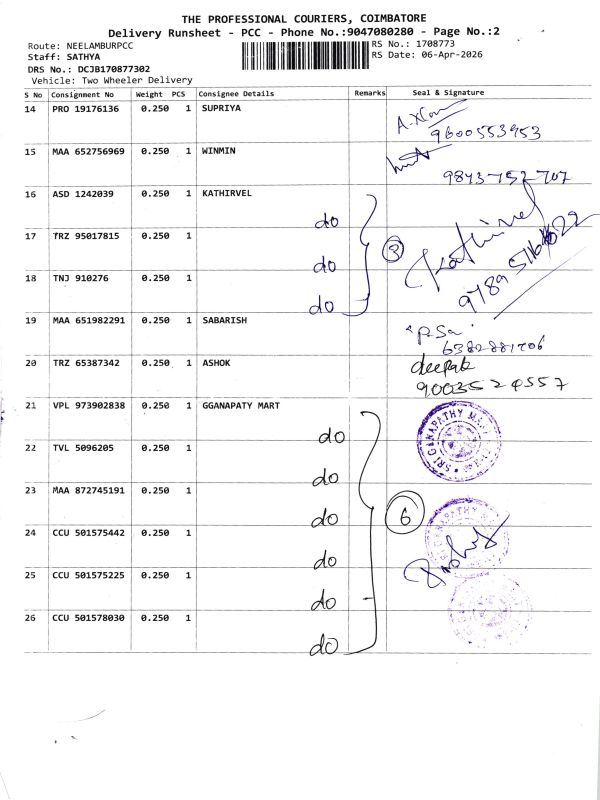 THE PROFESSIONAL COURIERS, COIMBATORE
Delivery Runsheet - PCC - Phone No.:9047080280 - Page No.:2
Route: NEELAMBURPCC RS No.: 1708773
Staff: SATHYA RS Date: 06-Apr-2026
DRS No.: DCJB170877302
Vehicle: Two Wheeler Delivery
S No Consignment No Weight PCS Consignee Details Remarks Seal & Signature
14 PRO 19176136 0.250 1 SUPRIYA
9600553953
15 MAA 652756969 0.250 1 WINMIN
9843752707
16 ASD 1242039 0.250 1 KATHIRVEL
do
17 TRZ 95017815 0.250 1
do
Kathirvel
18 TNJ 910276 0.250 1
do
19 MAA 651982291 0.250 1 SABARISH
6382881706
20 TRZ 65387342 0.250 1 ASHOK
deepak
9003524557
21 VPL 973902838 0.250 1 GGANAPATY MART
do
SRI GANAPATHY MART
22 TVL 5096205 0.250 1
do
23 MAA 872745191 0.250 1
do 6
24 CCU 501575442 0.250 1
do
25 CCU 501575225 0.250 1
do
26 CCU 501578030 0.250 1
do